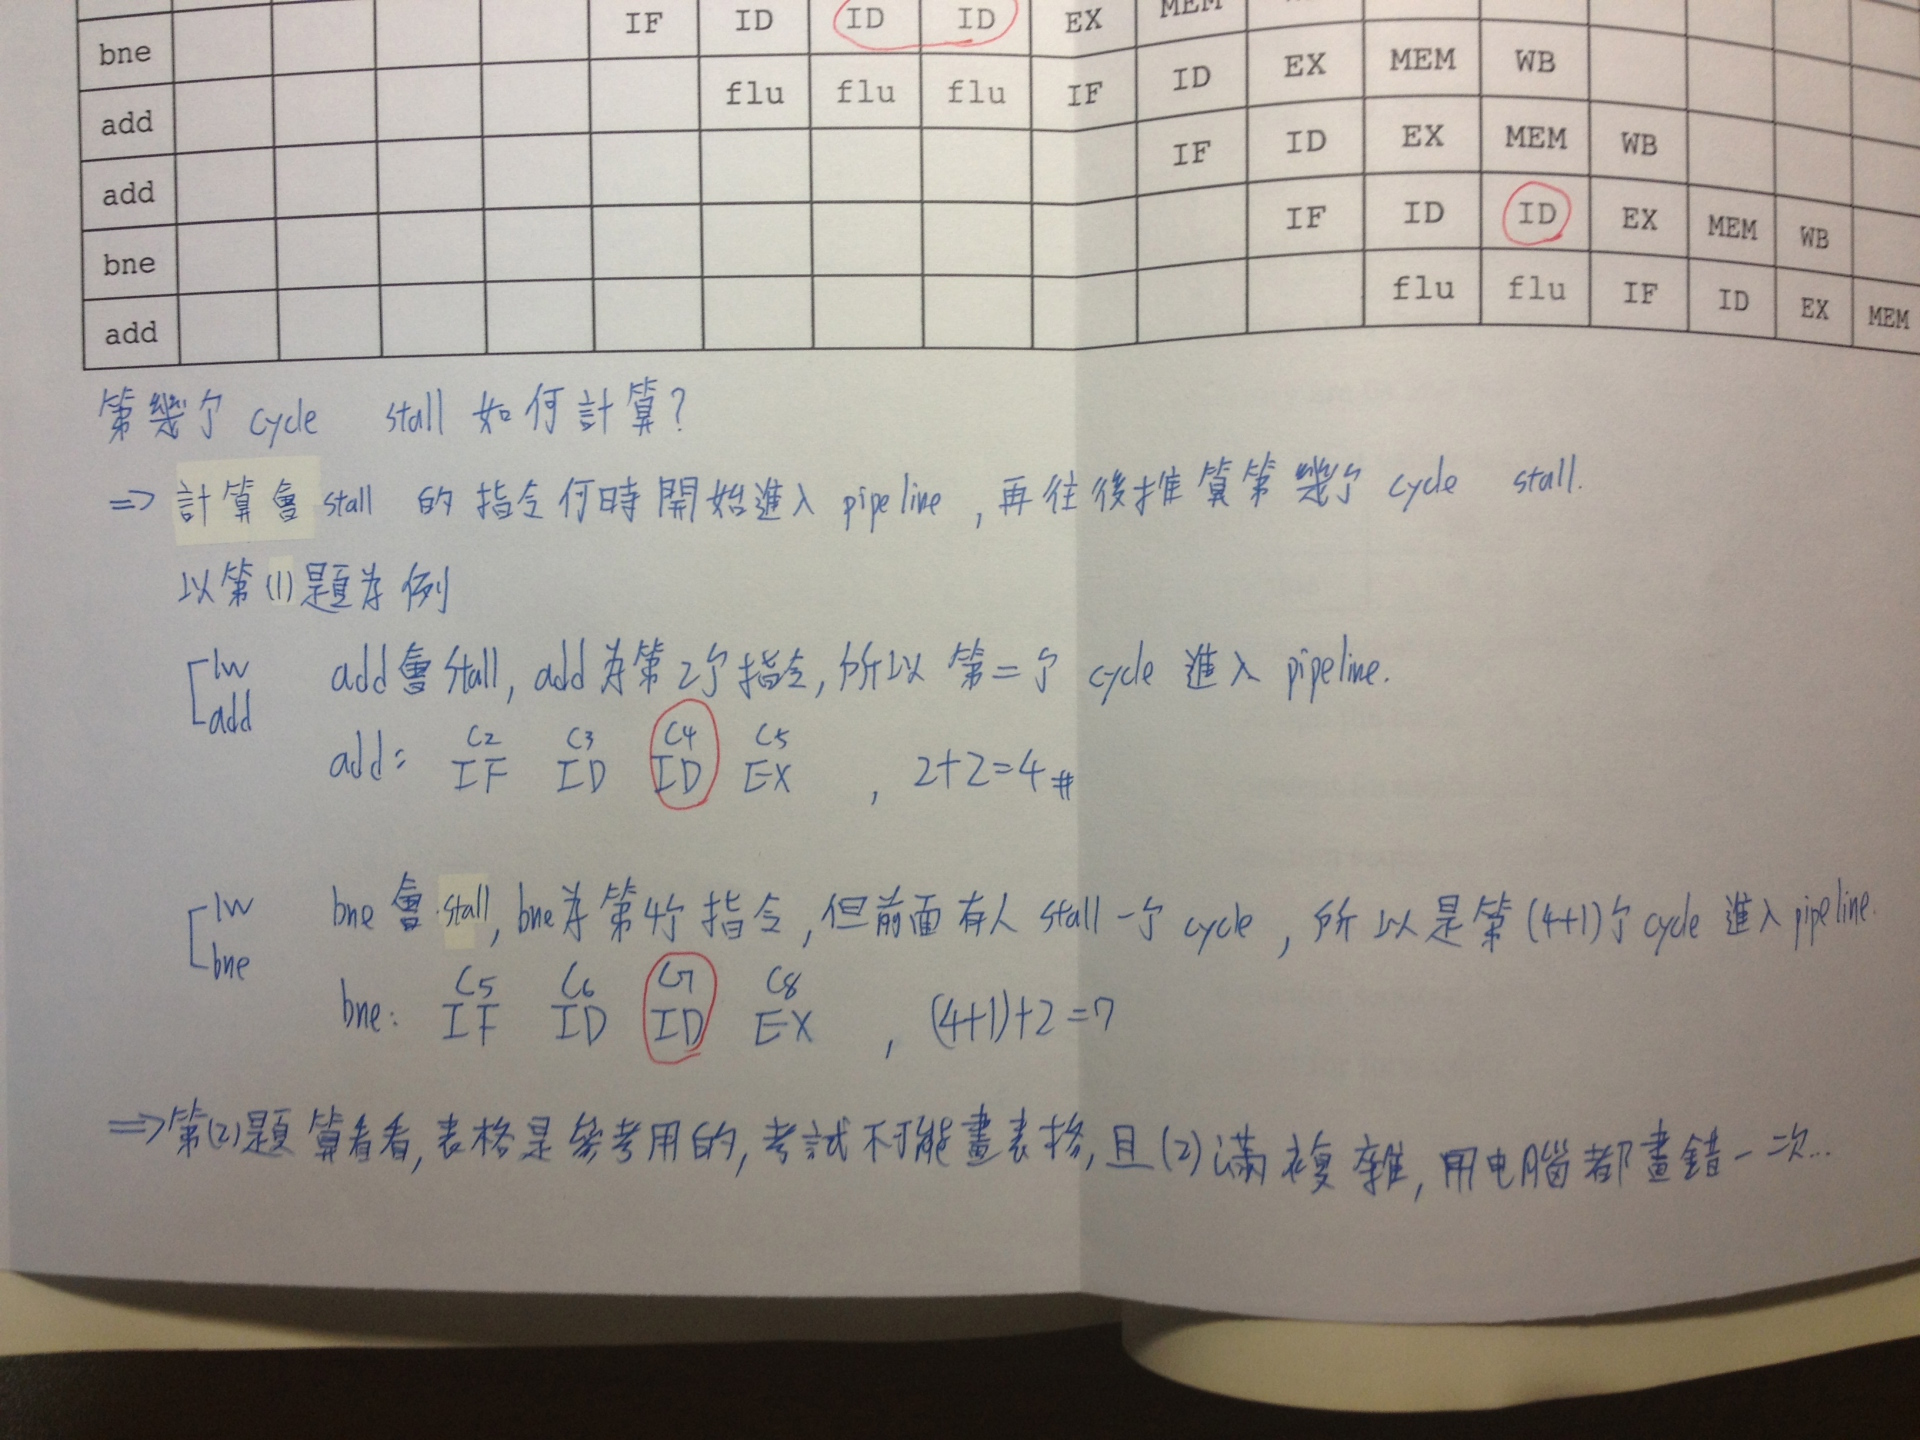 bne IF ID ID ID EX MEM
add flu flu flu IF ID EX MEM WB
add IF ID EX MEM WB
bne IF ID ID EX MEM WB
add flu flu IF ID EX MEM
第幾个 cycle stall 如何計算?
=> 計算會 stall 的指令何時開始進入 pipeline, 再往後推算第幾个 cycle stall.
以第(1)題為例
lw add會 stall, add為第2个指令, 所以 第二个 cycle 進入 pipeline.
add
C2 C3 C4 C5
add: IF ID ID EX , 2+2=4#
lw bne 會 stall, bne為第4个指令, 但前面有人 stall 一个 cycle, 所以是第(4+1)个 cycle 進入 pipeline.
bne
C5 C6 C7 C8
bne: IF ID ID EX , (4+1)+2=7
=> 第(2)題 算看看, 表格是參考用的, 考試不可能畫表格, 且(2)滿複雜, 用电腦都畫錯一次...